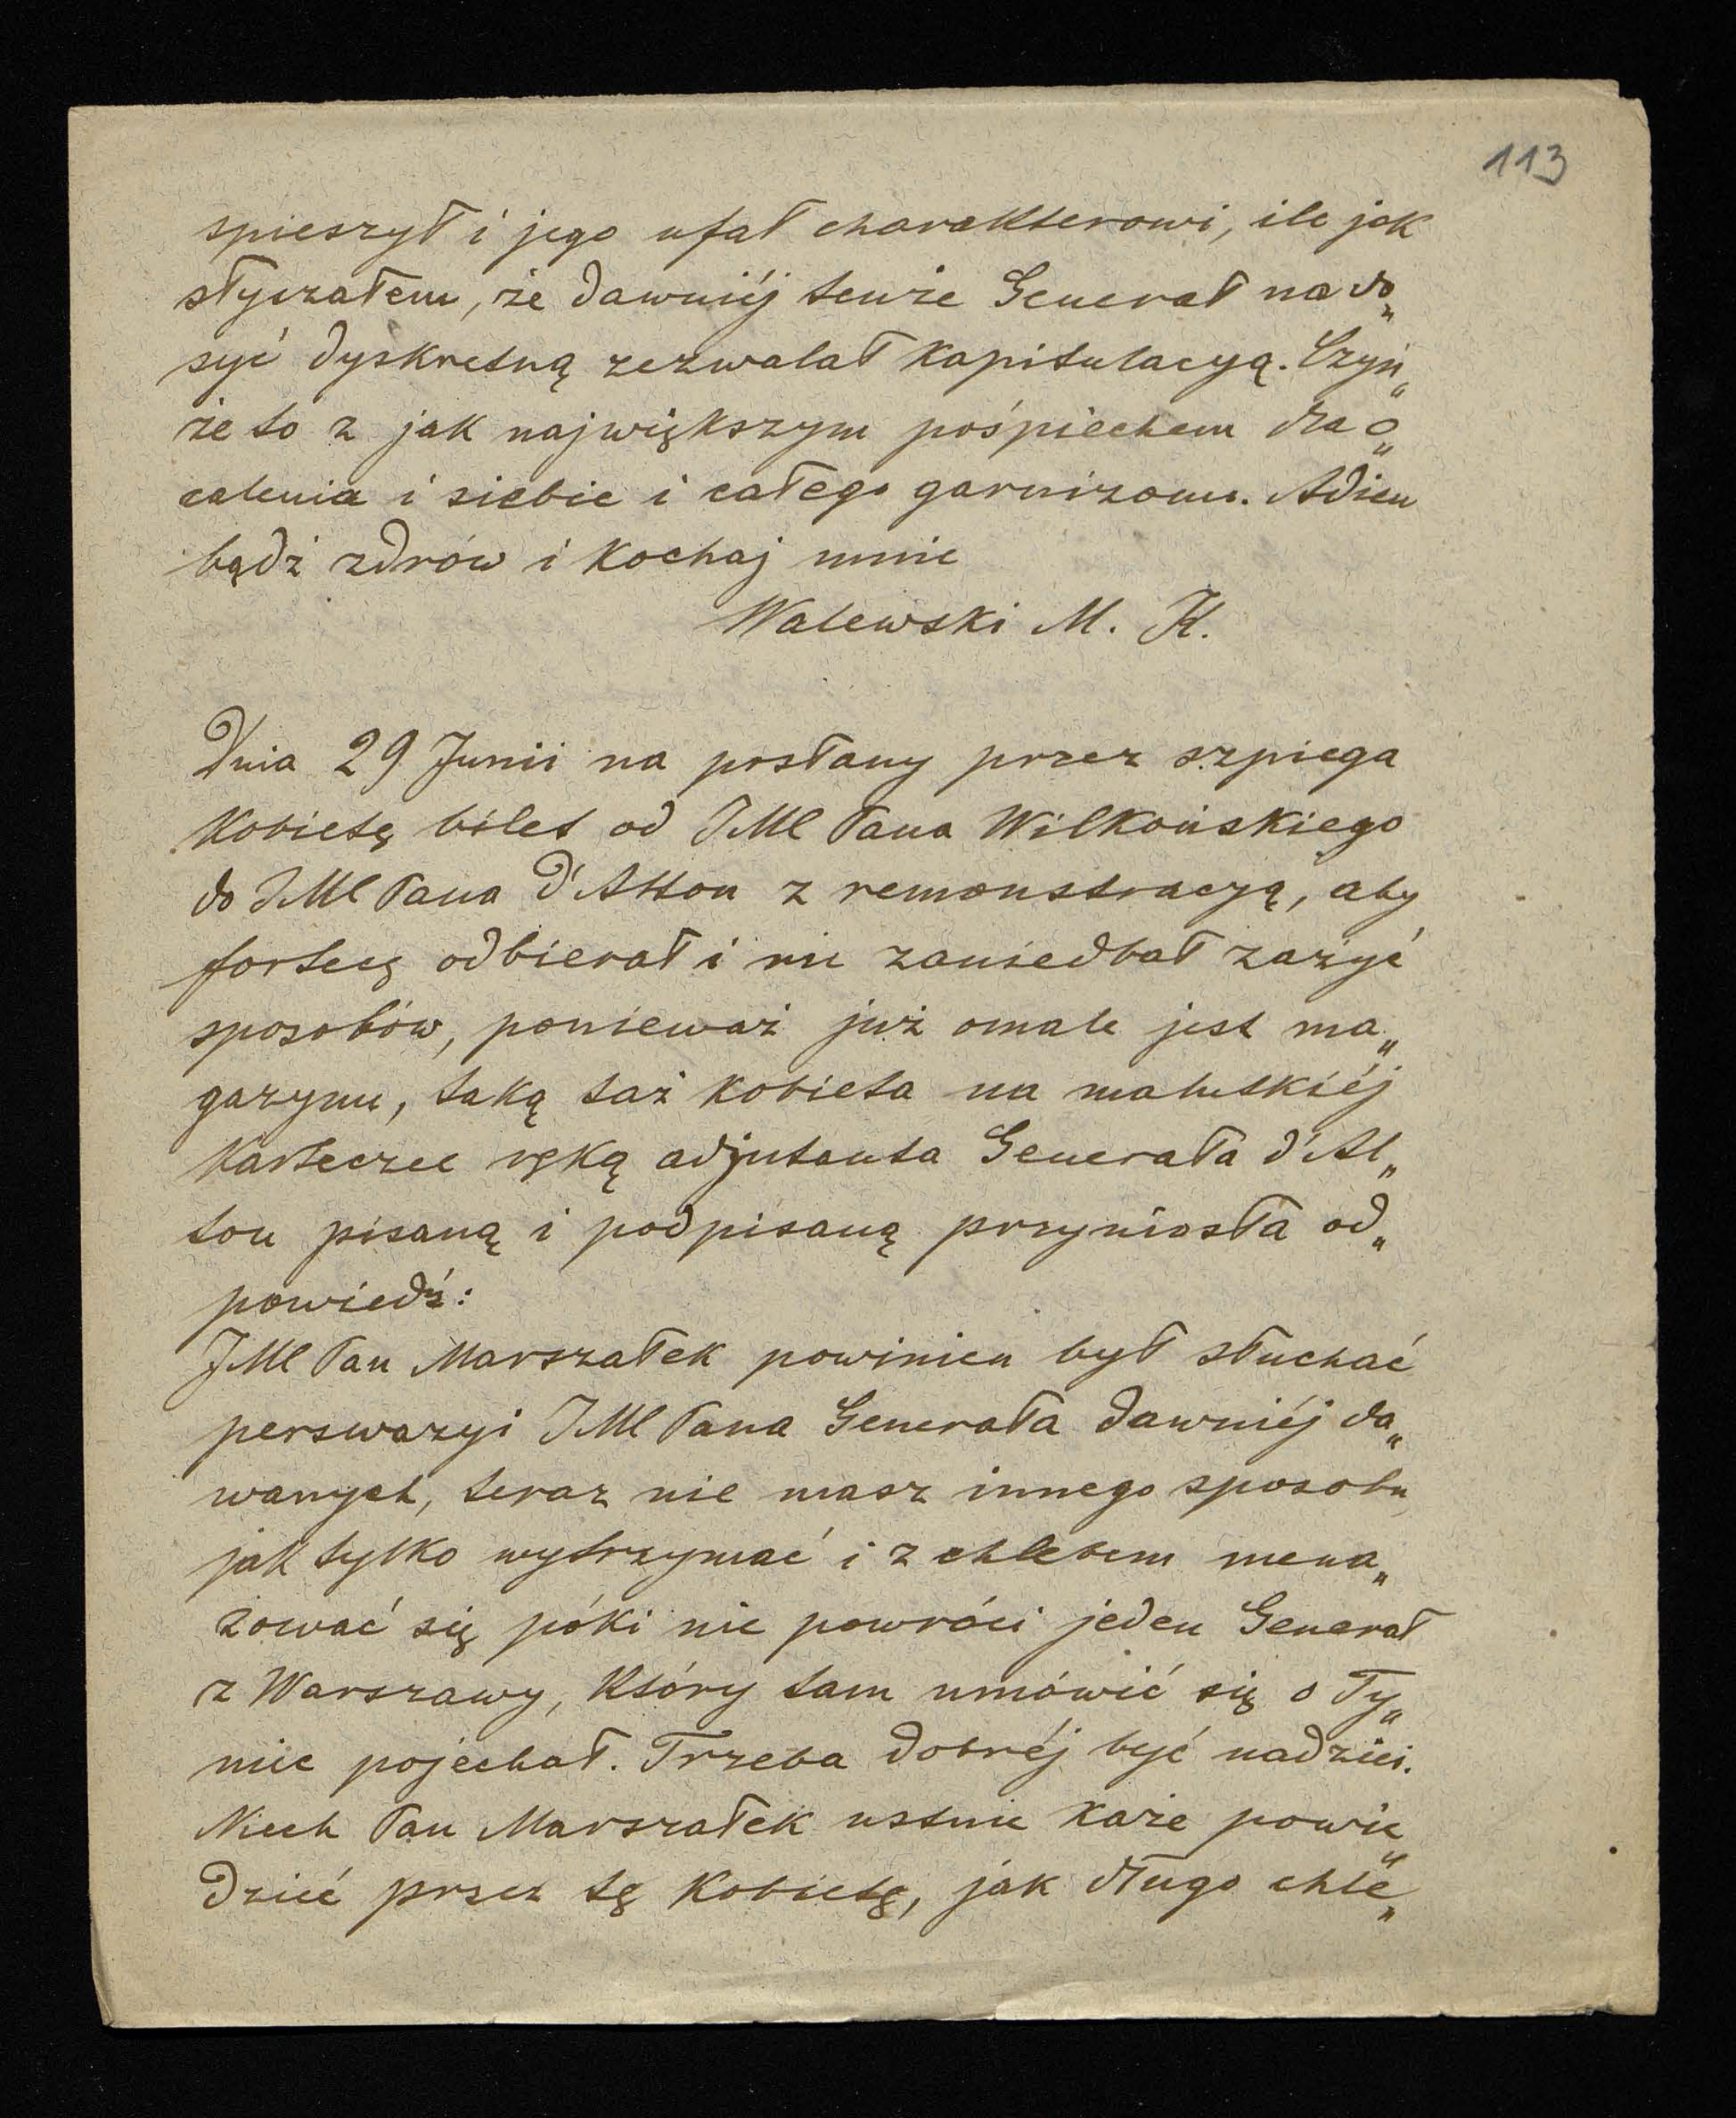 113
spieszył i jego ufał charakterowi, ile jak
słyszałem, że dawniéj tenże Generał na do„
syć dyskretną zezwalał kapitulacyą. Czyń„
że to z jak największym pośpiechem dla o„
calenia i siebie i całego garnizonu. Adieu
bądź zdrów i kochaj mnie
Walewski M. K.
Dnia 29 Junii na posłany przez szpiega
kobietę bilet od JMC Pana Wilkońskiego
do JMC Pana d'Alton z remonstracyą, aby
fortecę odbierał i nie zaniedbał zażyć
sposobów, ponieważ już omale jest ma„
gazynu, taką taż kobieta na malutkiéj
karteczce ręką adjutanta Generała d'Al„
ton pisaną i podpisaną przyniosła od„
powiedź:
JMC Pan Marszałek powinien był słuchać
perswazyi JMC Pana Generała dawniéj da„
wanych, teraz nie masz innego sposobu
jak tylko wytrzymać i z chlebem mena„
żować się póki nie powróci jeden Generał
z Warszawy, który tam umówić się o Ty„
niec pojechał. Trzeba dobréj być nadziei.
Niech Pan Marszałek ustnie każe powie„
dzieć przez tę kobietę, jak długo chle„